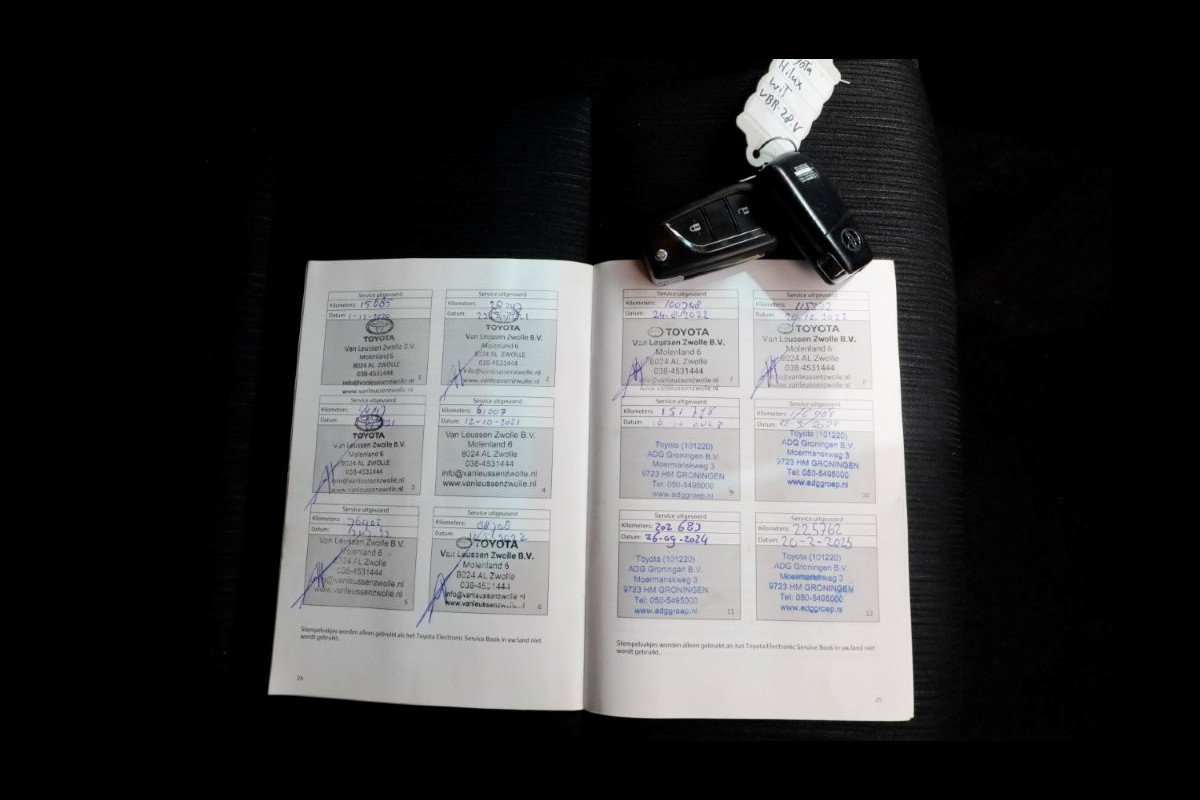 Hilux
wit
VBR-28-V
Service uitgevoerd
Kilometers:
Datum: 1-12-2020
TOYOTA
Van Leussen Zwolle B.V.
Molenland 6
8024 AL ZWOLLE
038-4531444
info@vanleussenzwolle.nl
www.vanleussenzwolle.nl
1
Service uitgevoerd
Kilometers:
Datum:
TOYOTA
Van Leussen Zwolle B.V.
Molenland 6
8024 AL ZWOLLE
038-4531444
info@vanleussenzwolle.nl
www.vanleussenzwolle.nl
2
Service uitgevoerd
Kilometers:
Datum:
TOYOTA
Van Leussen Zwolle B.V.
Molenland 6
8024 AL ZWOLLE
038-4531444
info@vanleussenzwolle.nl
www.vanleussenzwolle.nl
3
Service uitgevoerd
Kilometers: 61007
Datum: 12-10-2021
Van Leussen Zwolle B.V.
Molenland 6
8024 AL Zwolle
038-4531444
info@vanleussenzwolle.nl
www.vanleussenzwolle.nl
4
Service uitgevoerd
Kilometers:
Datum:
Van Leussen Zwolle B.V.
Molenland 6
8024 AL Zwolle
038-4531444
info@vanleussenzwolle.nl
www.vanleussenzwolle.nl
5
Service uitgevoerd
Kilometers:
Datum:
TOYOTA
Van Leussen Zwolle B.V.
Molenland 6
8024 AL Zwolle
038-4531444
info@vanleussenzwolle.nl
www.vanleussenzwolle.nl
6
Stempelvakjes worden alleen gebruikt als het Toyota Electronic Service Book in uw land niet
wordt gebruikt.
24
Service uitgevoerd
Kilometers: 100748
Datum:
TOYOTA
Van Leussen Zwolle B.V.
Molenland 6
8024 AL ZWOLLE
038-4531444
info@vanleussenzwolle.nl
www.vanleussenzwolle.nl
7
Service uitgevoerd
Kilometers:
Datum:
TOYOTA
Van Leussen Zwolle B.V.
Molenland 6
8024 AL ZWOLLE
038-4531444
info@vanleussenzwolle.nl
www.vanleussenzwolle.nl
8
Service uitgevoerd
Kilometers: 151718
Datum:
Toyota (101220)
ADG Groningen B.V.
Moermanskweg 3
9723 HM GRONINGEN
Tel: 050-5495000
www.adggroep.nl
9
Service uitgevoerd
Kilometers:
Datum:
Toyota (101220)
ADG Groningen B.V.
Moermanskweg 3
9723 HM GRONINGEN
Tel: 050-5495000
www.adggroep.nl
10
Service uitgevoerd
Kilometers: 202 683
Datum: 26-09-2024
Toyota (101220)
ADG Groningen B.V.
Moermanskweg 3
9723 HM GRONINGEN
Tel: 050-5495000
www.adggroep.nl
11
Service uitgevoerd
Kilometers: 225762
Datum: 20-2-2025
Toyota (101220)
ADG Groningen B.V.
Moermanskweg 3
9723 HM GRONINGEN
Tel: 050-5495000
www.adggroep.nl
12
Stempelvakjes worden alleen gebruikt als het Toyota Electronic Service Book in uw land niet
wordt gebruikt.
25